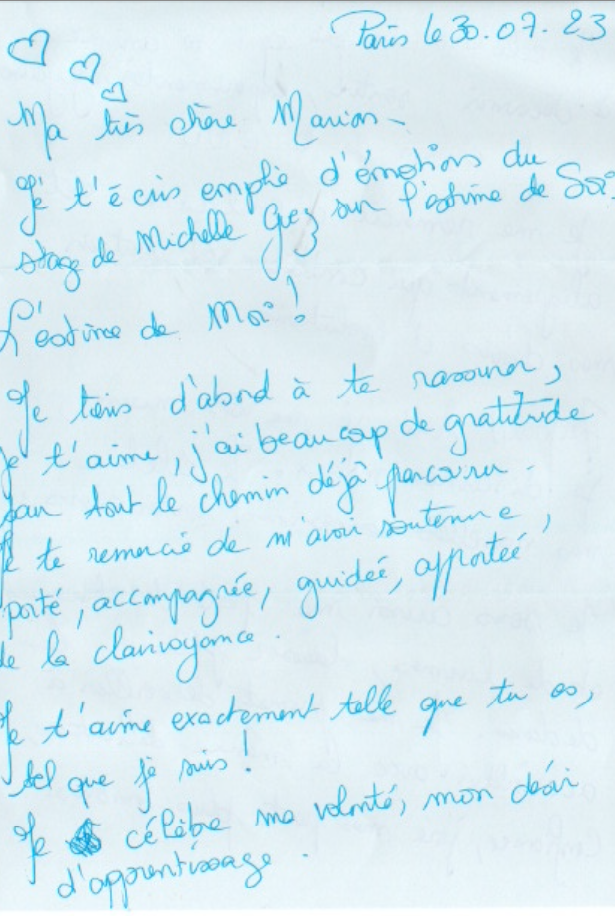 Paris le 30.07.23
Ma très chère Marion -
Je t'écris emplie d'émotions du
stage de Michelle Gez sur l'estime de Soi.
L'estime de Moi !
Je tiens d'abord à te rassurer,
Je t'aime, j'ai beaucoup de gratitude
pour tout le chemin déjà parcouru -
Je te remercie de m'avoir soutenue,
porté, accompagnée, guideé, apporteé
de la clairvoyance.
Je t'aime exactement telle que tu es,
tel que je suis !
Je célèbre ma volonté, mon désir
d'apprentissage.